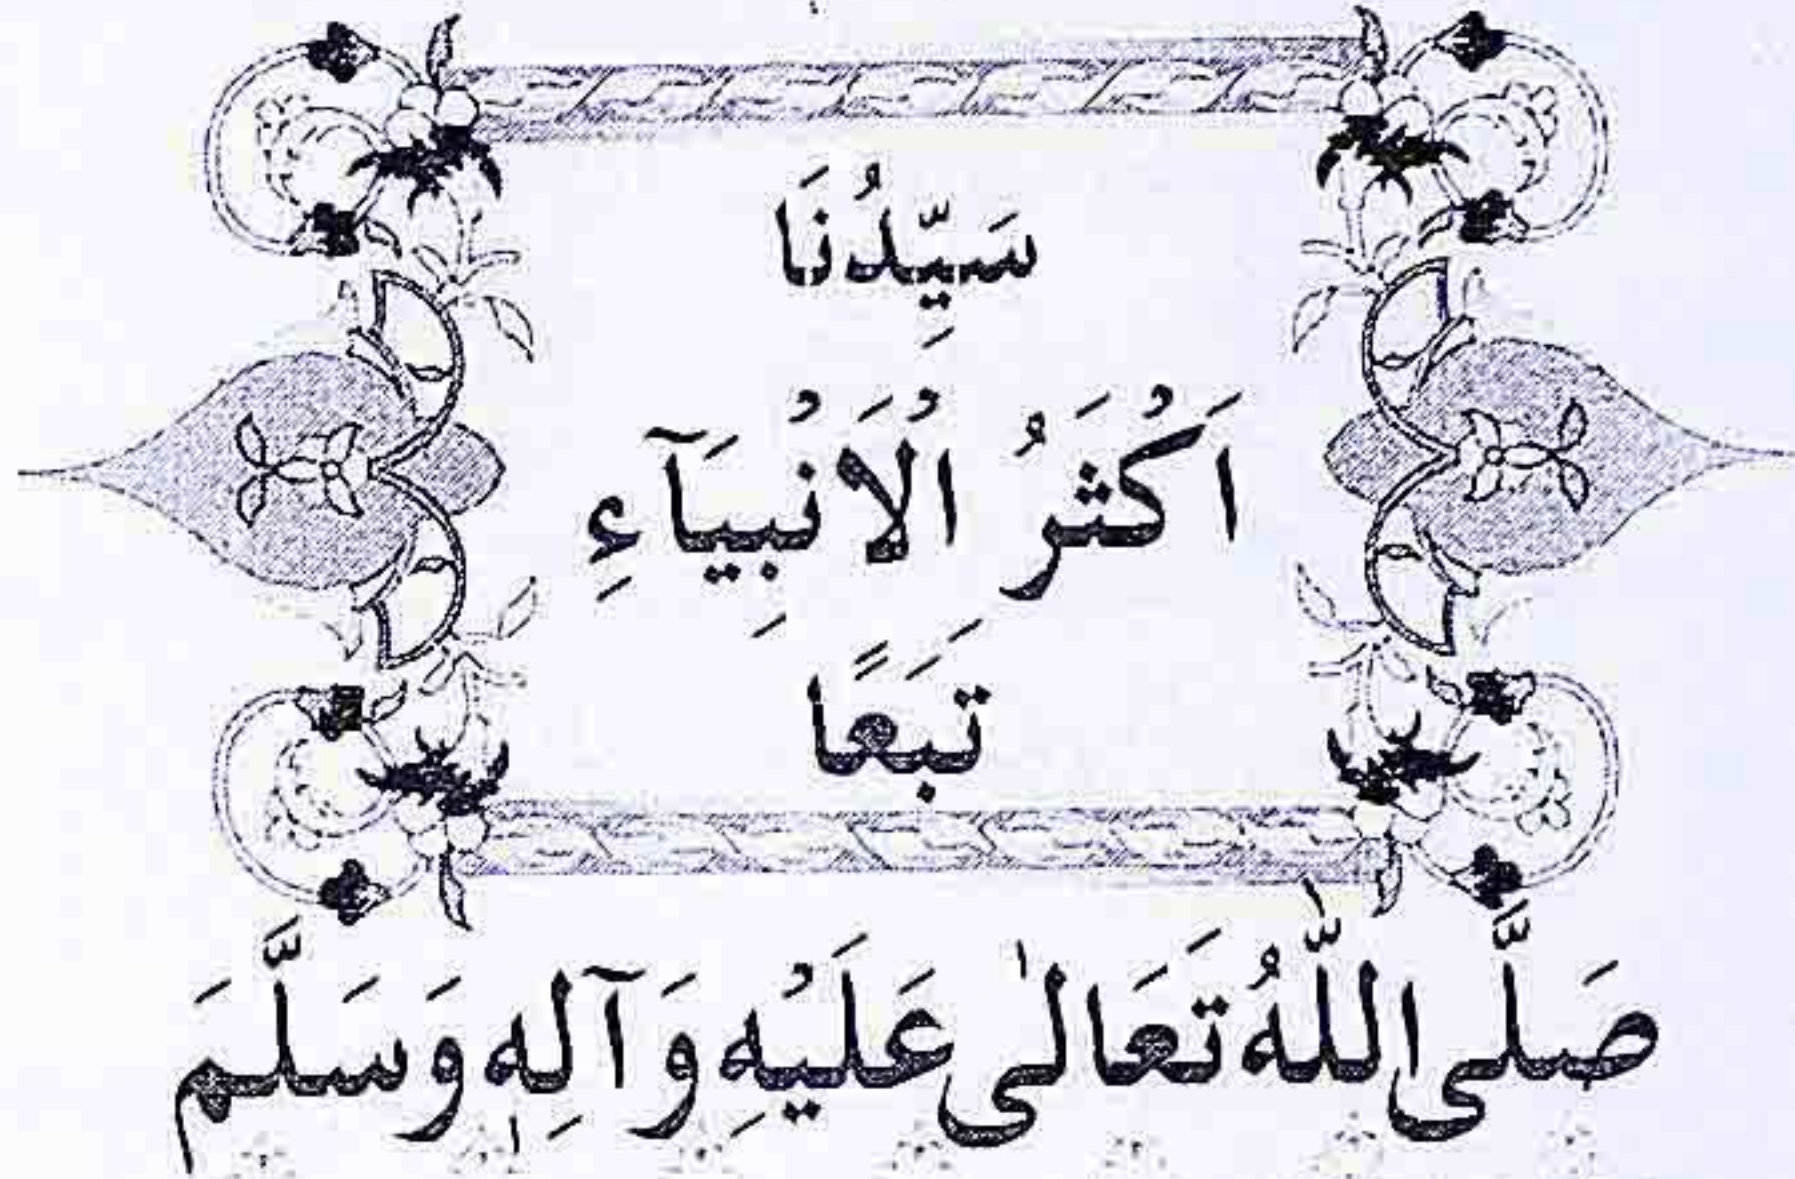 سَيِّدُنَا
اَكْثَرُ الْاَنْۢبِيَآءِ
تَبَعًا
صَلَّى اللّٰهُ تَعَالٰى عَلَيْهِ وَآلِهٖ وَسَلَّمَ